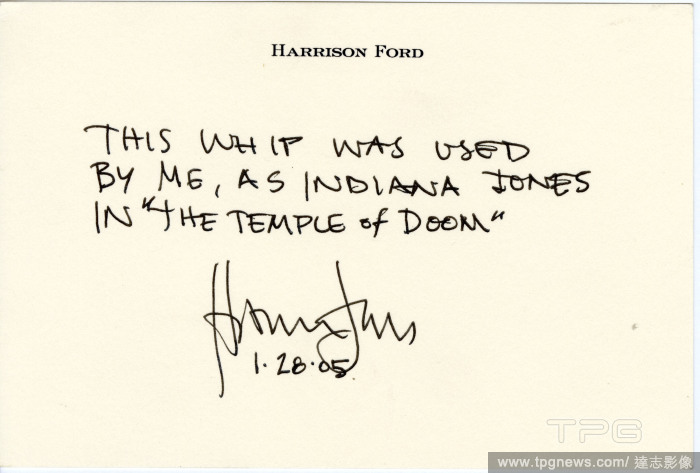 HARRISON FORD
THIS WHIP WAS USED
BY ME, AS INDIANA JONES
IN "THE TEMPLE of DOOM"
Harrison Ford
1.28.05
TPG
www.tpgnews.com/ 達志影像